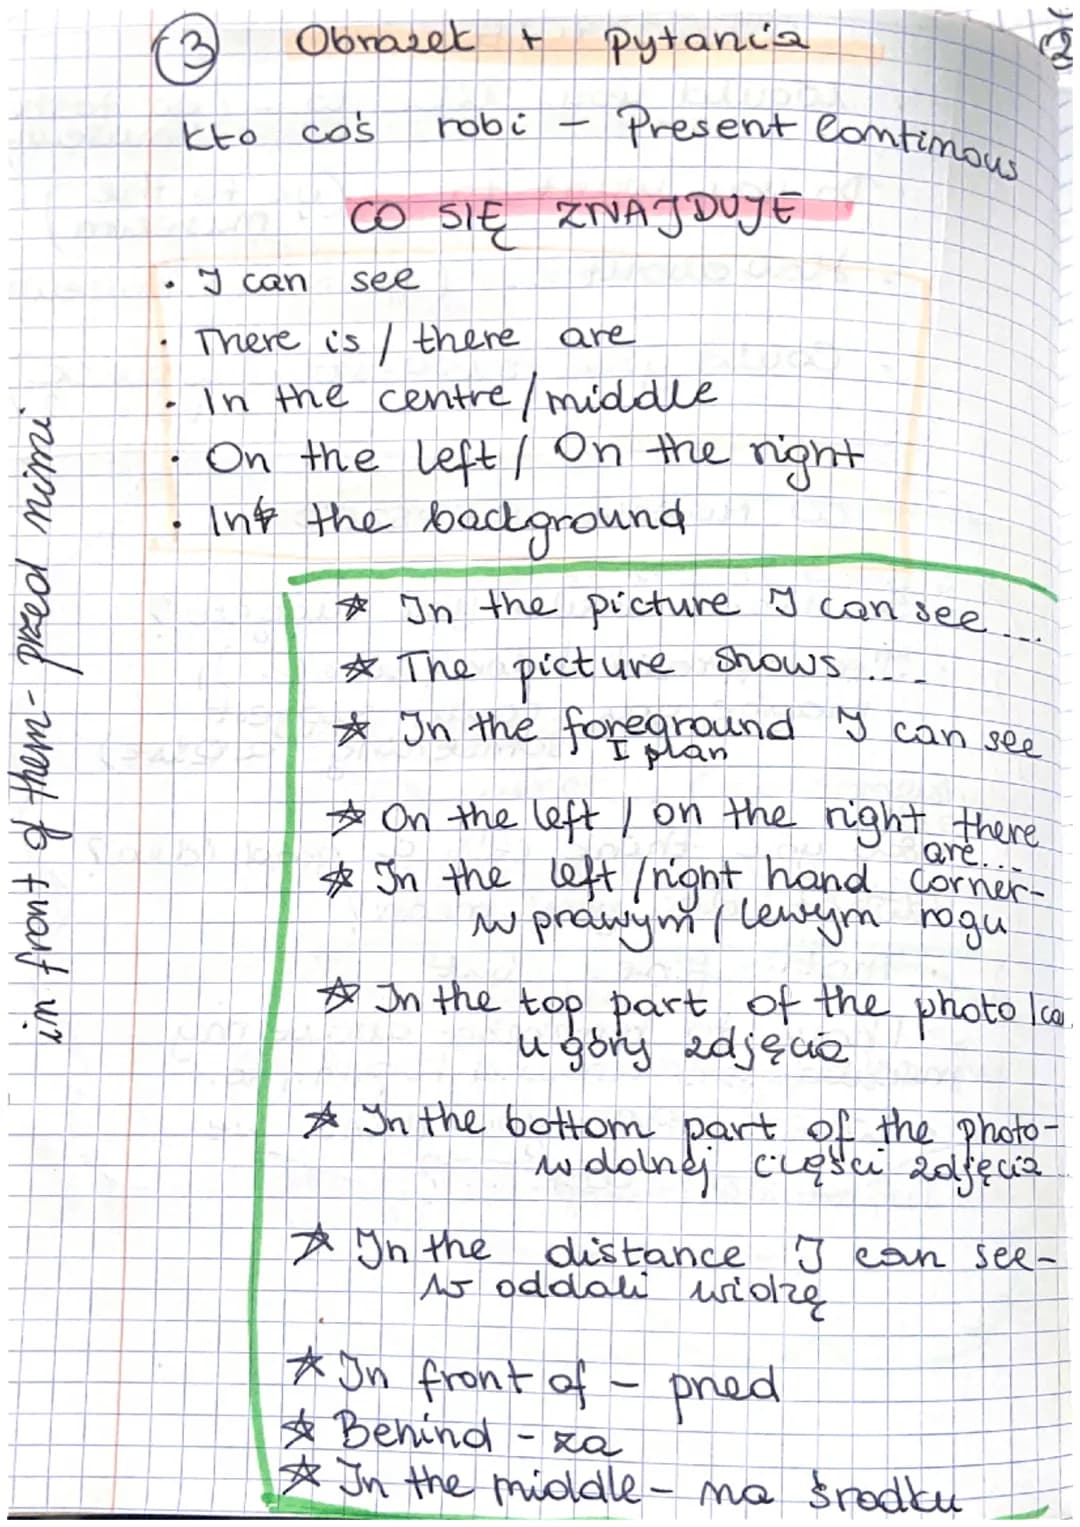 3 Obrazek + pytania
kto coś robi - Present Contimous
CO SIĘ ZNAJDUJE
• I can see
• There is / there are
• In the centre / middle
• On the left / On the right
• In the background
in front of them - przed nimi
☆ In the picture I can see...
☆ The picture shows....
☆ In the foreground I can see
I plan
☆ On the left / on the right there
are...
☆ In the left / right hand corner-
w prawym / lewym rogu
☆ In the top part of the photo
u góry zdjęcia
☆ In the bottom part of the photo-
w dolnej części zdjęcia
☆ In the distance I can see-
w oddali widzę
☆ In front of - przed
☆ Behind - za
☆ In the middle - na środku